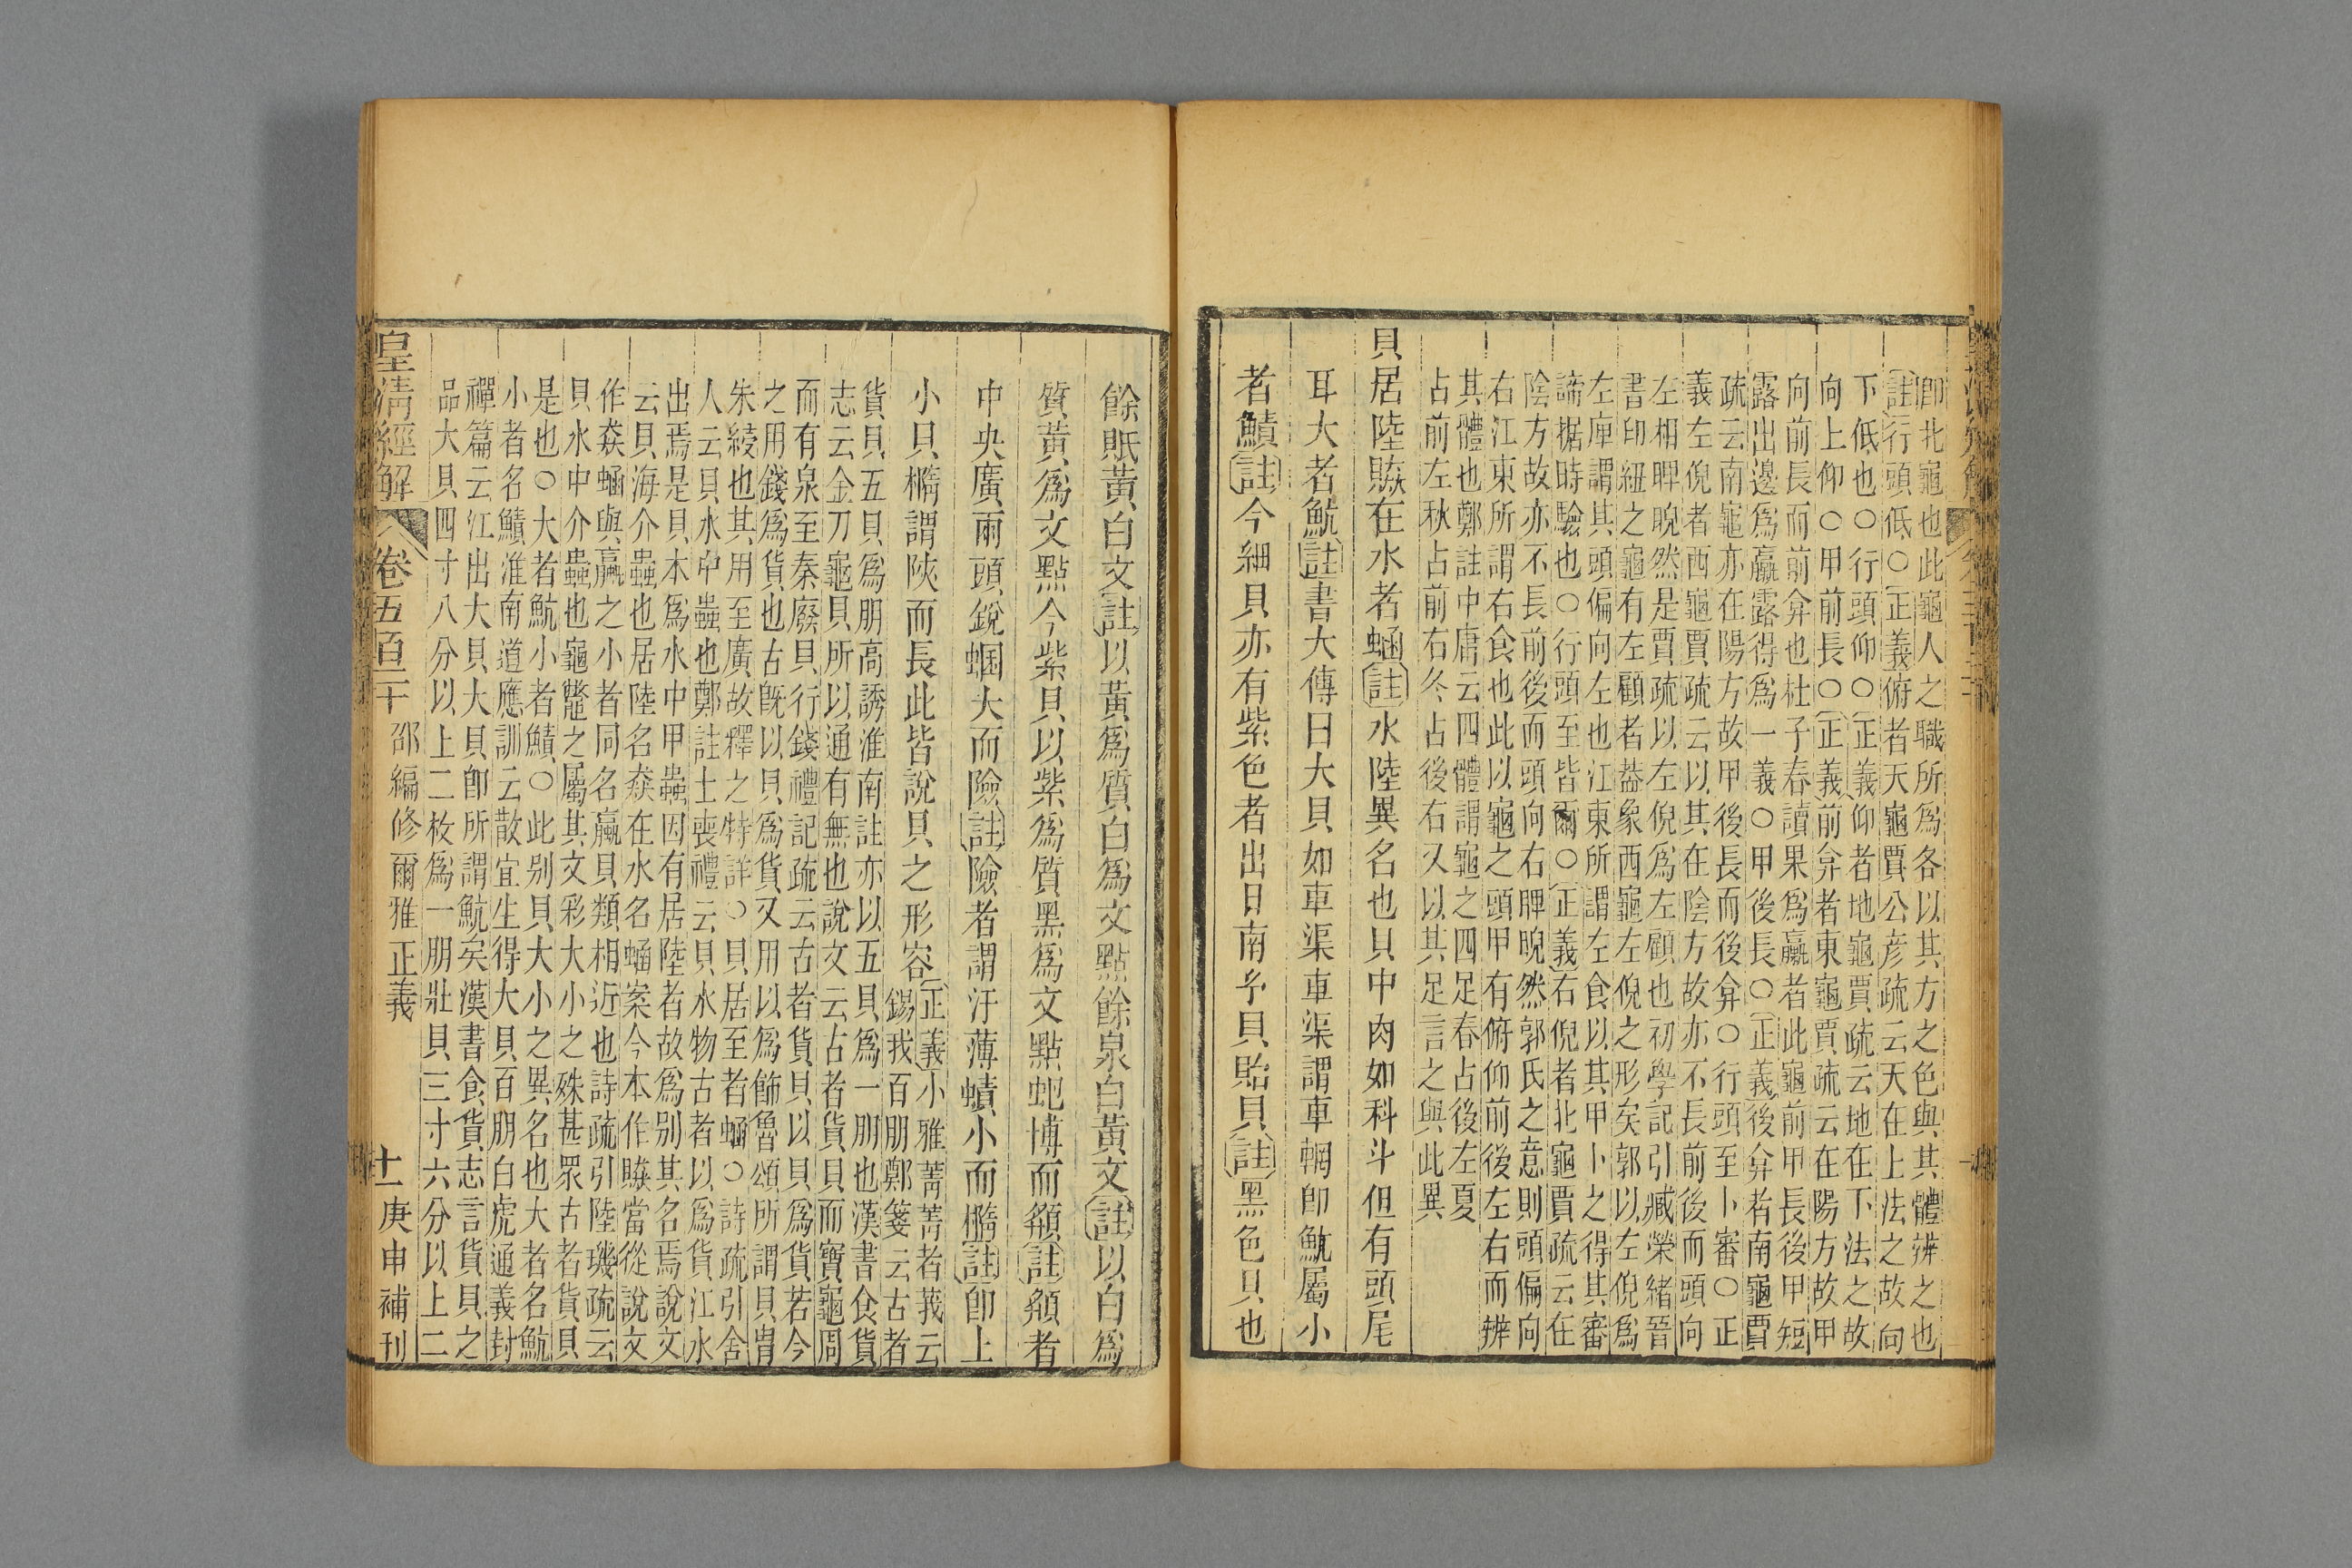 卽北龜也此龜人之職所爲各以其方之色與其體辨之也
註行頭低○正義俯者天龜賈公彦疏云天在上法之故向
下低也○行頭仰○正義仰者地龜賈疏云地在下法之故
向上仰○甲前長○正義前弇者東龜賈疏云在陽方故甲
向前長而前弇也杜子春讀果爲蠃者此龜前甲長後甲短
露出邊爲蠃露得爲一義○甲後長○正義後弇者南龜賈
疏云南龜亦在陽方故甲後長而後弇○行頭至卜審○正
義左倪者西龜賈疏云以其在陰方故亦不長前後而頭向
左相睥睨然是賈疏以左倪爲左顧也初學記引臧榮緒晉
書印紐之龜有左顧者葢象西龜左倪之形矣郭以左倪爲
左庳謂其頭偏向左也江東所謂左食以其甲卜之得其審
諦据時驗也○行頭至皆爾○正義右倪者北龜賈疏云在
陰方故亦不長前後而頭向右睥睨然郭氏之意則頭偏向
右江東所謂右食也此以龜之頭甲有俯仰前後左右而辨
其體也鄭註中庸云四體謂龜之四足春占後左夏
占前左秋占前右冬占後右又以其足言之與此異
貝居陸贆在水者蜬註水陸異名也貝中肉如科斗但有頭尾
耳大者魧註書大傳曰大貝如車渠車渠謂車輞卽魧屬小
者鰿註今細貝亦有紫色者出日南玄貝貽貝註黑色貝也
餘貾黃白文註以黃爲質白爲文點餘泉白黃文註以白爲
質黃爲文點今紫貝以紫爲質黑爲文點蚆博而頯註頯者
中央廣兩頭銳蜠大而險註險者謂汙薄蟦小而橢註卽上
小貝橢謂陜而長此皆說貝之形容正義小雅菁菁者莪云
錫我百朋鄭箋云古者
貨貝五貝爲朋高誘淮南註亦以五貝爲一朋也漢書食貨
志云金刀龜貝所以通有無也說文云古者貨貝而寶龜周
而有泉至秦廢貝行錢禮記疏云古者貨貝以貝爲貨若今
之用錢爲貨也古旣以貝爲貨又用以爲飾魯頌所謂貝冑
朱綅也其用至廣故釋之特詳○貝居至者蜬○詩疏引舍
人云貝水中蟲也鄭註士喪禮云貝水物古者以爲貨江水
出焉是貝本爲水中甲蟲因有居陸者故爲别其名焉說文
云貝海介蟲也居陸名猋在水名蜬案今本作贆當從說文
作猋蜬與蠃之小者同名蠃貝類相近也詩疏引陸璣疏云
貝水中介蟲也龜鼈之屬其文彩大小之殊甚眾古者貨貝
是也○大者魧小者鰿○此别貝大小之異名也大者名魧
小者名鰿淮南道應訓云散宜生得大貝百朋白虎通義封
禪篇云江出大貝大貝卽所謂魧矣漢書食貨志言貨貝之
品大貝四寸八分以上二枚爲一朋壯貝三寸六分以上二
皇淸經解 卷五百二十 邵編修爾雅正義 十一 庚申補刊